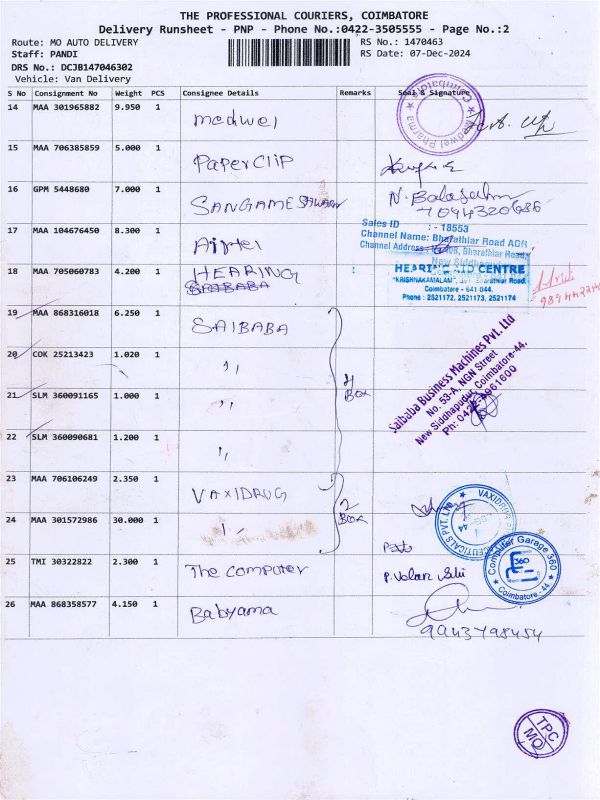 THE PROFESSIONAL COURIERS, COIMBATORE
Delivery Runsheet - PNP - Phone No.:0422-3505555 - Page No.:2
Route: MO AUTO DELIVERY RS No.: 1470463
Staff: PANDI RS Date: 07-Dec-2024
DRS No.: DCJB147046302
Vehicle: Van Delivery
S No Consignment No Weight PCS Consignee Details Remarks Seal & Signature
14 MAA 301965882 9.950 1 medwel
Medwel Pharma Coimbatore
15 MAA 706385859 5.000 1 Paperclip
16 GPM 5448680 7.000 1 SANGAMESWARAN N. Balasubm
7094320686
17 MAA 104676450 8.300 1 Airtel
Sales ID : - 18553
Channel Name: Bharathiar Road AOR
Channel Address Bharathiar Road
New Siddha
18 MAA 705060783 4.200 1 HEARING
SAIBABA
HEARING AID CENTRE
"KRISHNAKAMALAM" Bharathiar Road
Coimbatore - 641 044.
Phone : 2521172, 2521173, 2521174
19 MAA 868316018 6.250 1 SAIBABA
20 COK 25213423 1.020 1 "
4
Box
21 SLM 360091165 1.000 1 "
22 SLM 360090681 1.200 1 "
Saibaba Business Machines Pvt. Ltd
No. 53-A, NGN Street
New Siddhapudur, Coimbatore-44.
23 MAA 706106249 2.350 1 VAXIDRUG
2
Box
24 MAA 301572986 30.000 1 "
25 TMI 30322822 2.300 1 The computer P. Velan
Computer Garage 360
360
Coimbatore - 44
26 MAA 868358577 4.150 1 Babyama
9943798454
TPC
MO